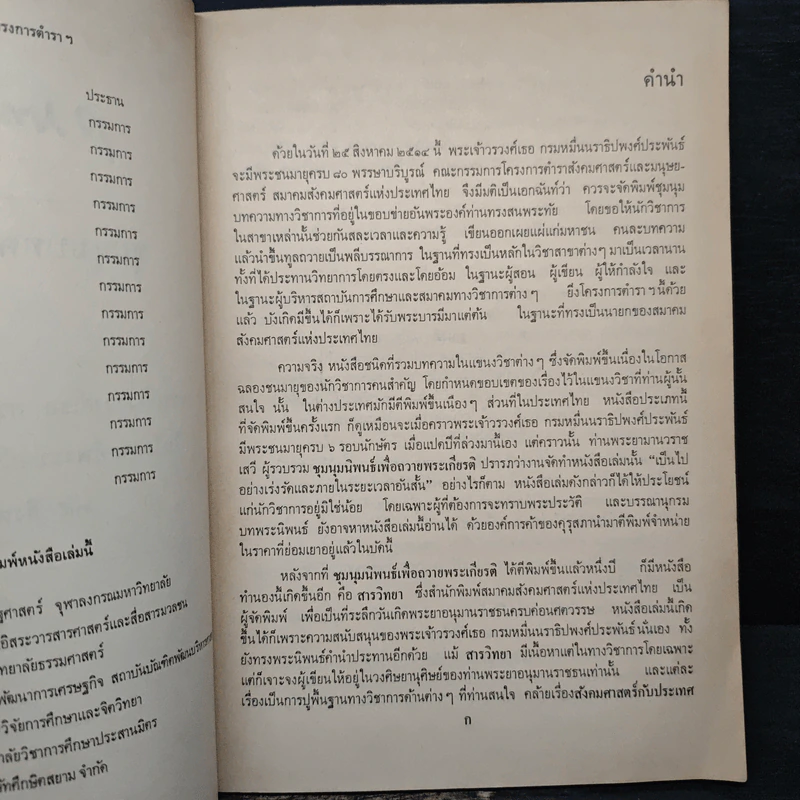 รงการตำรา ฯ
ประธาน
กรรมการ
กรรมการ
กรรมการ
กรรมการ
กรรมการ
กรรมการ
กรรมการ
กรรมการ
กรรมการ
กรรมการ
กรรมการ
กรรมการ
กรรมการ
กรรมการ
มพ์หนังสือเล่มนี้
ฐศาสตร์ จุฬาลงกรณมหาวิทยาลัย
อิสระวารสารศาสตร์และสื่อสารมวลชน
ทยาลัยธรรมศาสตร์
พัฒนาการเศรษฐกิจ สถาบันบัณฑิตพัฒนบริหารศาสตร์
วิจัยการศึกษาและจิตวิทยา
าลัยวิชาการศึกษาประสานมิตร
ัทศึกษิตสยาม จำกัด
คำนำ
ด้วยในวันที่ ๒๕ สิงหาคม ๒๕๑๔ นี้ พระเจ้าวรวงศ์เธอ กรมหมื่นนราธิปพงศ์ประพันธ์
จะมีพระชนมายุครบ ๘๐ พรรษาบริบูรณ์ คณะกรรมการโครงการตำราสังคมศาสตร์และมนุษย-
ศาสตร์ สมาคมสังคมศาสตร์แห่งประเทศไทย จึงมีมติเป็นเอกฉันท์ว่า ควรจะจัดพิมพ์ชุมนุม
บทความทางวิชาการที่อยู่ในขอบข่ายอันพระองค์ท่านทรงสนพระทัย โดยขอให้นักวิชาการ
ในสาขาเหล่านั้นช่วยกันสละเวลาและความรู้ เขียนออกเผยแผ่แก่มหาชน คนละบทความ
แล้วนำขึ้นทูลถวายเป็นพลีบรรณาการ ในฐานที่ทรงเป็นหลักในวิชาสาขาต่างๆ มาเป็นเวลานาน
ทั้งที่ได้ประทานวิทยาการโดยตรงและโดยอ้อม ในฐานะผู้สอน ผู้เขียน ผู้ให้กำลังใจ และ
ในฐานะผู้บริหารสถาบันการศึกษาและสมาคมทางวิชาการต่างๆ ยิ่งโครงการตำราฯ นี้ด้วย
แล้ว บังเกิดมีขึ้นได้ก็เพราะได้รับพระบารมีมาแต่ต้น ในฐานะที่ทรงเป็นนายกของสมาคม
สังคมศาสตร์แห่งประเทศไทย
ความจริง หนังสือชนิดที่รวมบทความในแขนงวิชาต่างๆ ซึ่งจัดพิมพ์ขึ้นเนื่องในโอกาส
ฉลองชนมายุของนักวิชาการคนสำคัญ โดยกำหนดขอบเขตของเรื่องไว้ในแขนงวิชาที่ท่านผู้นั้น
สนใจ นั้น ในต่างประเทศมักมีตีพิมพ์ขึ้นเนืองๆ ส่วนที่ในประเทศไทย หนังสือประเภทนี้
ที่จัดพิมพ์ขึ้นครั้งแรก ก็ดูเหมือนจะเมื่อคราวพระเจ้าวรวงศ์เธอ กรมหมื่นนราธิปพงศ์ประพันธ์
มีพระชนมายุครบ ๖ รอบนักษัตร เมื่อแปดปีที่ล่วงมานี้เอง แต่คราวนั้น ท่านพระยามานวราช
เสวี ผู้รวบรวม ชุมนุมนิพนธ์เพื่อถวายพระเกียรติ ปรารภว่างานจัดทำหนังสือเล่มนั้น “เป็นไป
อย่างเร่งรัดและภายในระยะเวลาอันสั้น” อย่างไรก็ตาม หนังสือเล่มดังกล่าวก็ได้ให้ประโยชน์
แก่นักวิชาการอยู่มิใช่น้อย โดยเฉพาะผู้ที่ต้องการจะทราบพระประวัติ และบรรณานุกรม
บทพระนิพนธ์ ยังอาจหาหนังสือเล่มนี้อ่านได้ ด้วยองค์การค้าของคุรุสภานำมาตีพิมพ์จำหน่าย
ในราคาที่ย่อมเยาอยู่แล้วในบัดนี้
หลังจากที่ ชุมนุมนิพนธ์เพื่อถวายพระเกียรติ ได้ตีพิมพ์ขึ้นแล้วหนึ่งปี ก็มีหนังสือ
ทำนองนี้เกิดขึ้นอีก คือ สารวิทยา ซึ่งสำนักพิมพ์สมาคมสังคมศาสตร์แห่งประเทศไทย เป็น
ผู้จัดพิมพ์ เพื่อเป็นที่ระลึกวันเกิดพระยาอนุมานราชธนครบค่อนศตวรรษ หนังสือเล่มนี้เกิด
ขึ้นได้ก็เพราะความสนับสนุนของพระเจ้าวรวงศ์เธอ กรมหมื่นนราธิปพงศ์ประพันธ์นั่นเอง ทั้ง
ยังทรงพระนิพนธ์คำนำประทานอีกด้วย แม้ สารวิทยา มีเนื้อหาแต่ในทางวิชาการโดยเฉพาะ
แต่ก็เจาะจงผู้เขียนให้อยู่ในวงศิษยานุศิษย์ของท่านพระยาอนุมานราชธนเท่านั้น และแต่ละ
เรื่องเป็นการปูพื้นฐานทางวิชาการด้านต่างๆ ที่ท่านสนใจ คล้ายเรื่องสังคมศาสตร์กับประเทศ
ก